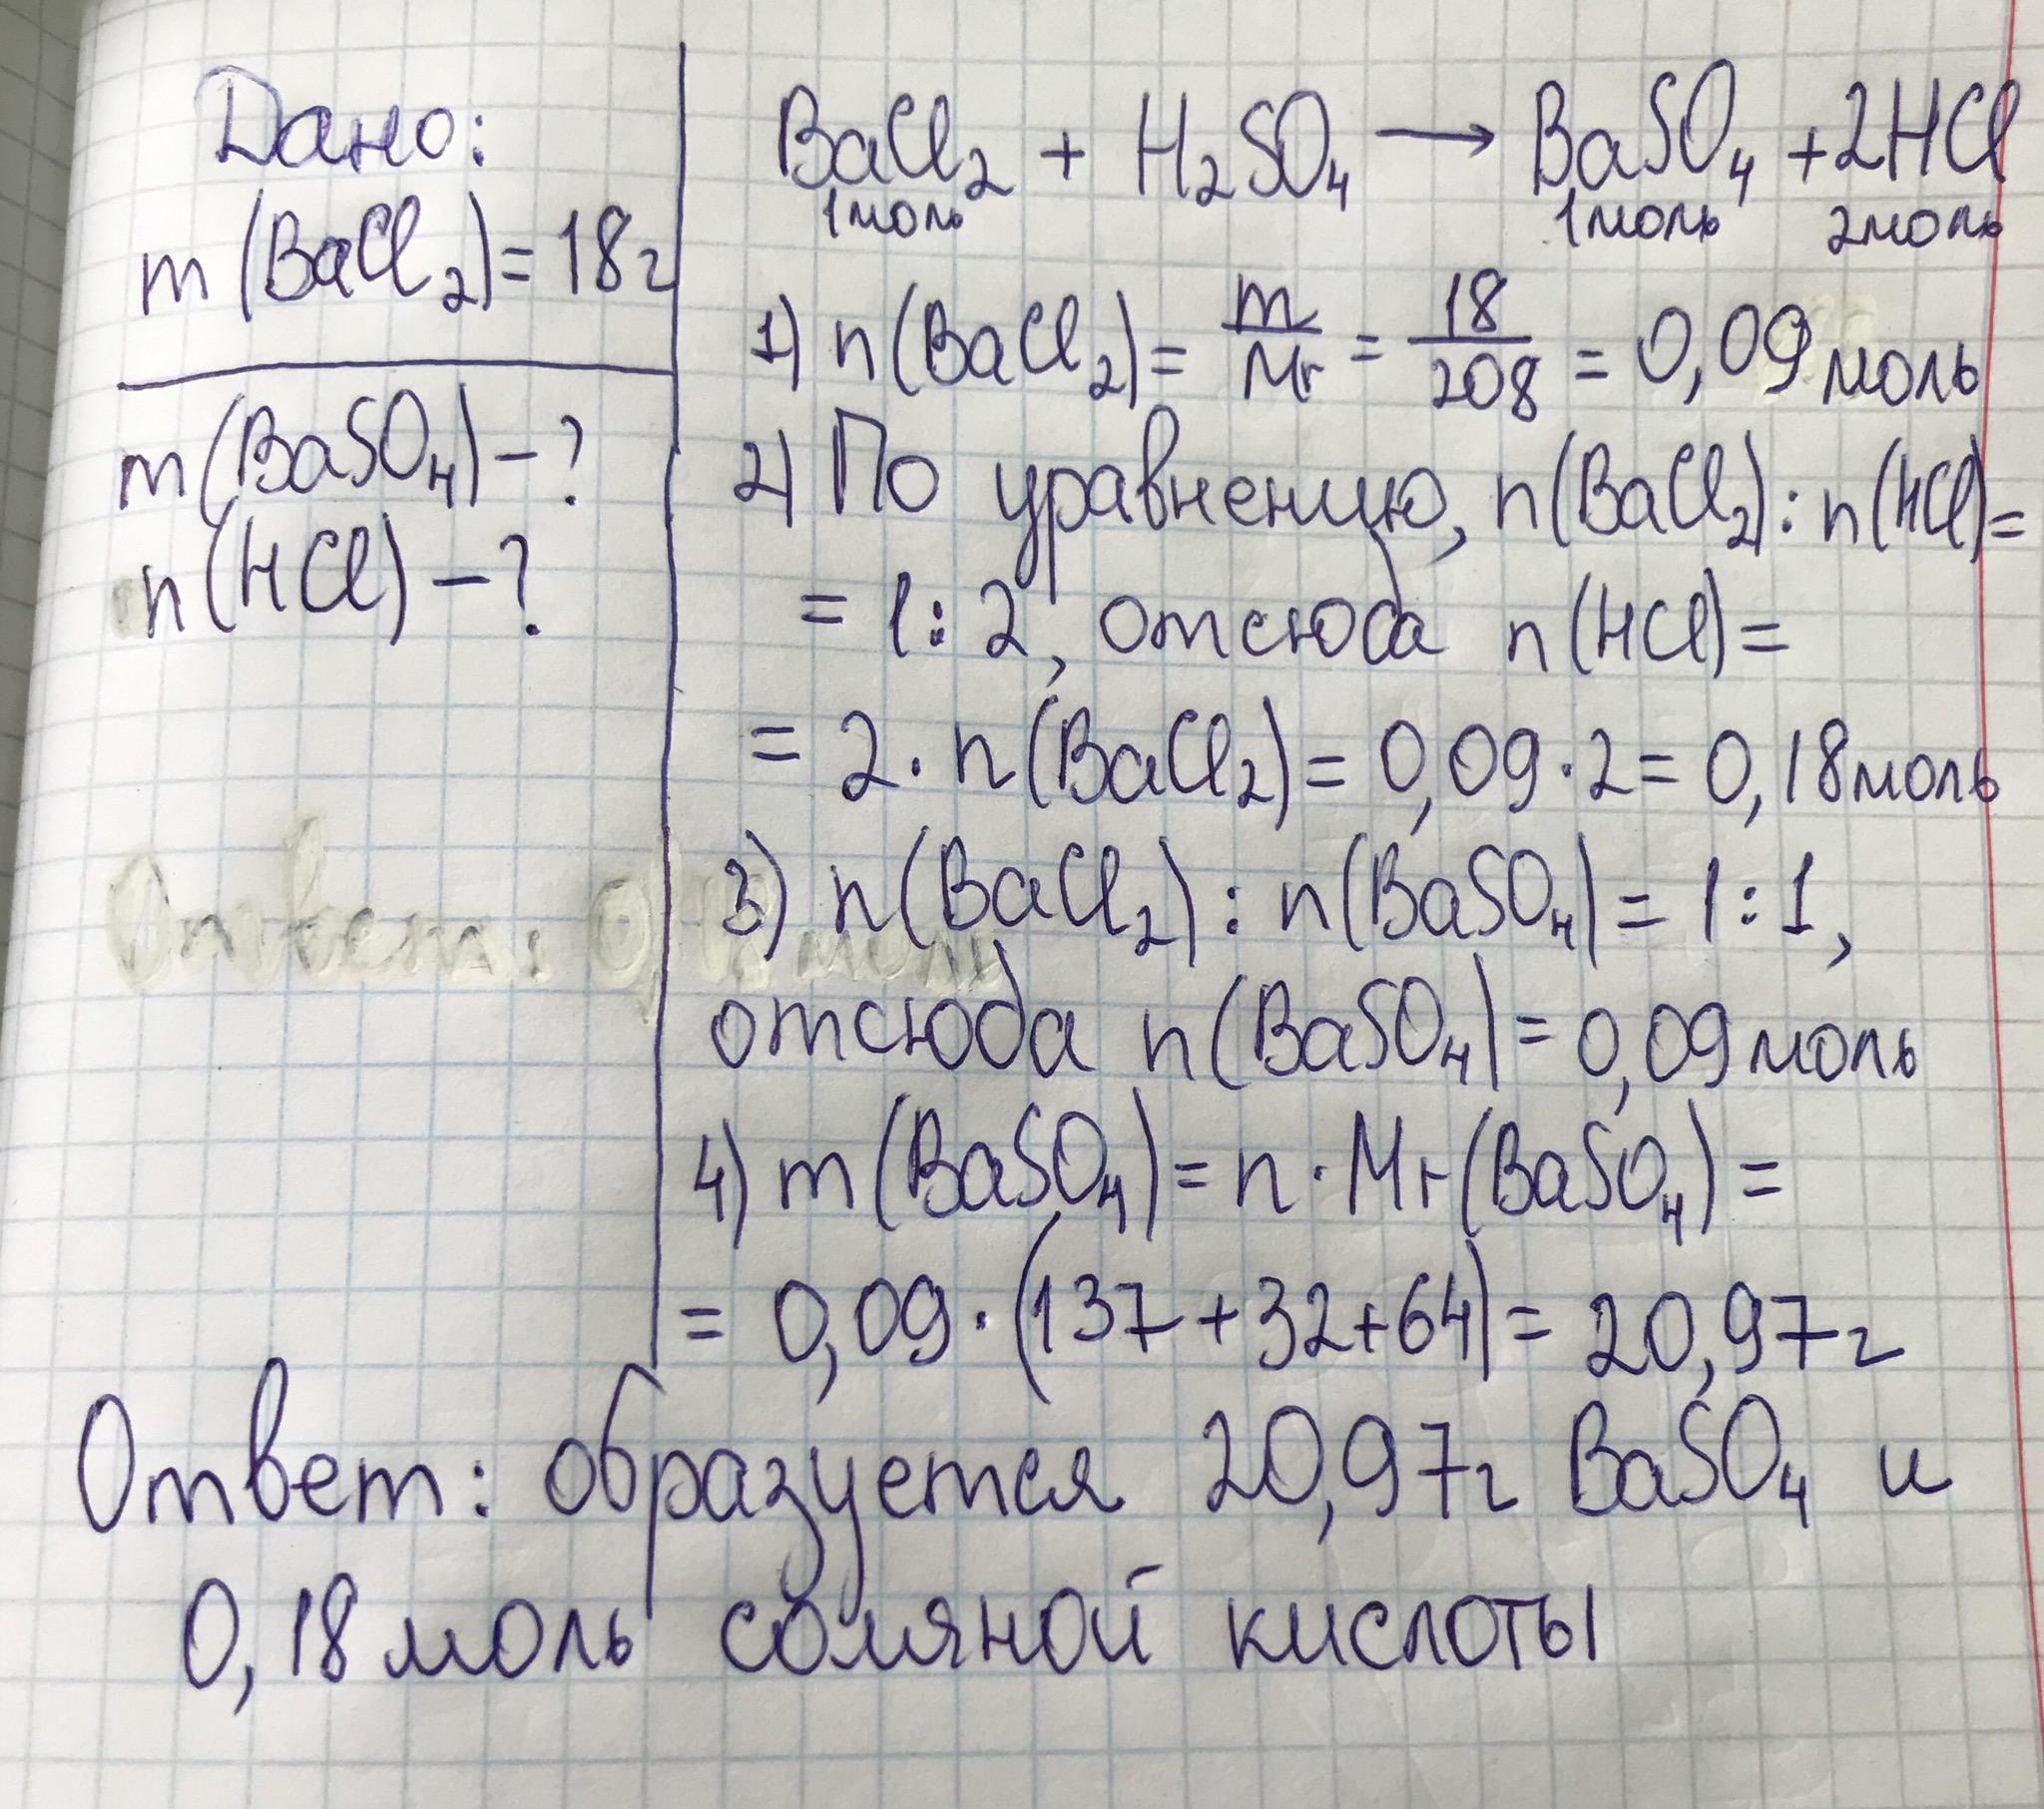 Дано:
m(BaCl₂)=18г
m(BaSO₄)-?
n(HCl)-?
BaCl₂ + H₂SO₄ → BaSO₄ + 2HCl
1моль 1моль 2моль
1) n(BaCl₂)= m/Mr = 18/208 = 0,09 моль
2) По уравнению, n(BaCl₂):n(HCl)=
= 1:2, отсюда n(HCl)=
= 2·n(BaCl₂)= 0,09·2= 0,18моль
3) n(BaCl₂):n(BaSO₄)= 1:1,
отсюда n(BaSO₄)= 0,09моль
4) m(BaSO₄)= n·Mr(BaSO₄)=
= 0,09·(137+32+64)= 20,97г
Ответ:
моль
Ответ: образуется 20,97г BaSO₄ и
0,18 моль соляной кислоты